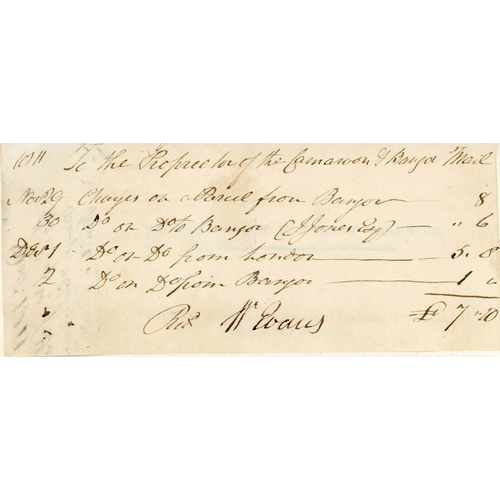 1811 To the Proprietor of the Carnarvon & Bangor Mail
Novr 29 Charges on a Parcel from Bangor 8
30 Do on Do to Bangor (J Jones Esq) — " 6
Decr 1 - Do on Do from London — 5 . 8
2 Do on Do from Bangor — 1 "
Wm Evans £ 7 " 10